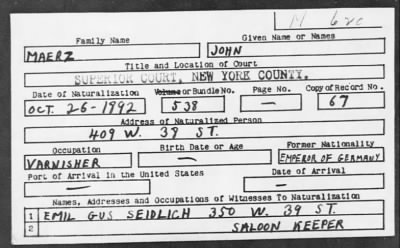 M 620
Family Name Given Name or Names
MAERZ JOHN
Title and Location of Court
SUPERIOR COURT, NEW YORK COUNTY.
Date of Naturalization Volume or Bundle No. Page No. Copy of Record No.
OCT. 26-1892 538 — 67
Address of Naturalized Person
409 W. 38 ST.
Occupation Birth Date or Age Former Nationality
VARNISHER — EMPEROR OF GERMANY
Port of Arrival in the United States Date of Arrival
— —
Names, Addresses and Occupations of Witnesses To Naturalization
1 EMIL GUS SEIDLICH 350 W. 39 ST.
2 SALOON KEEPER